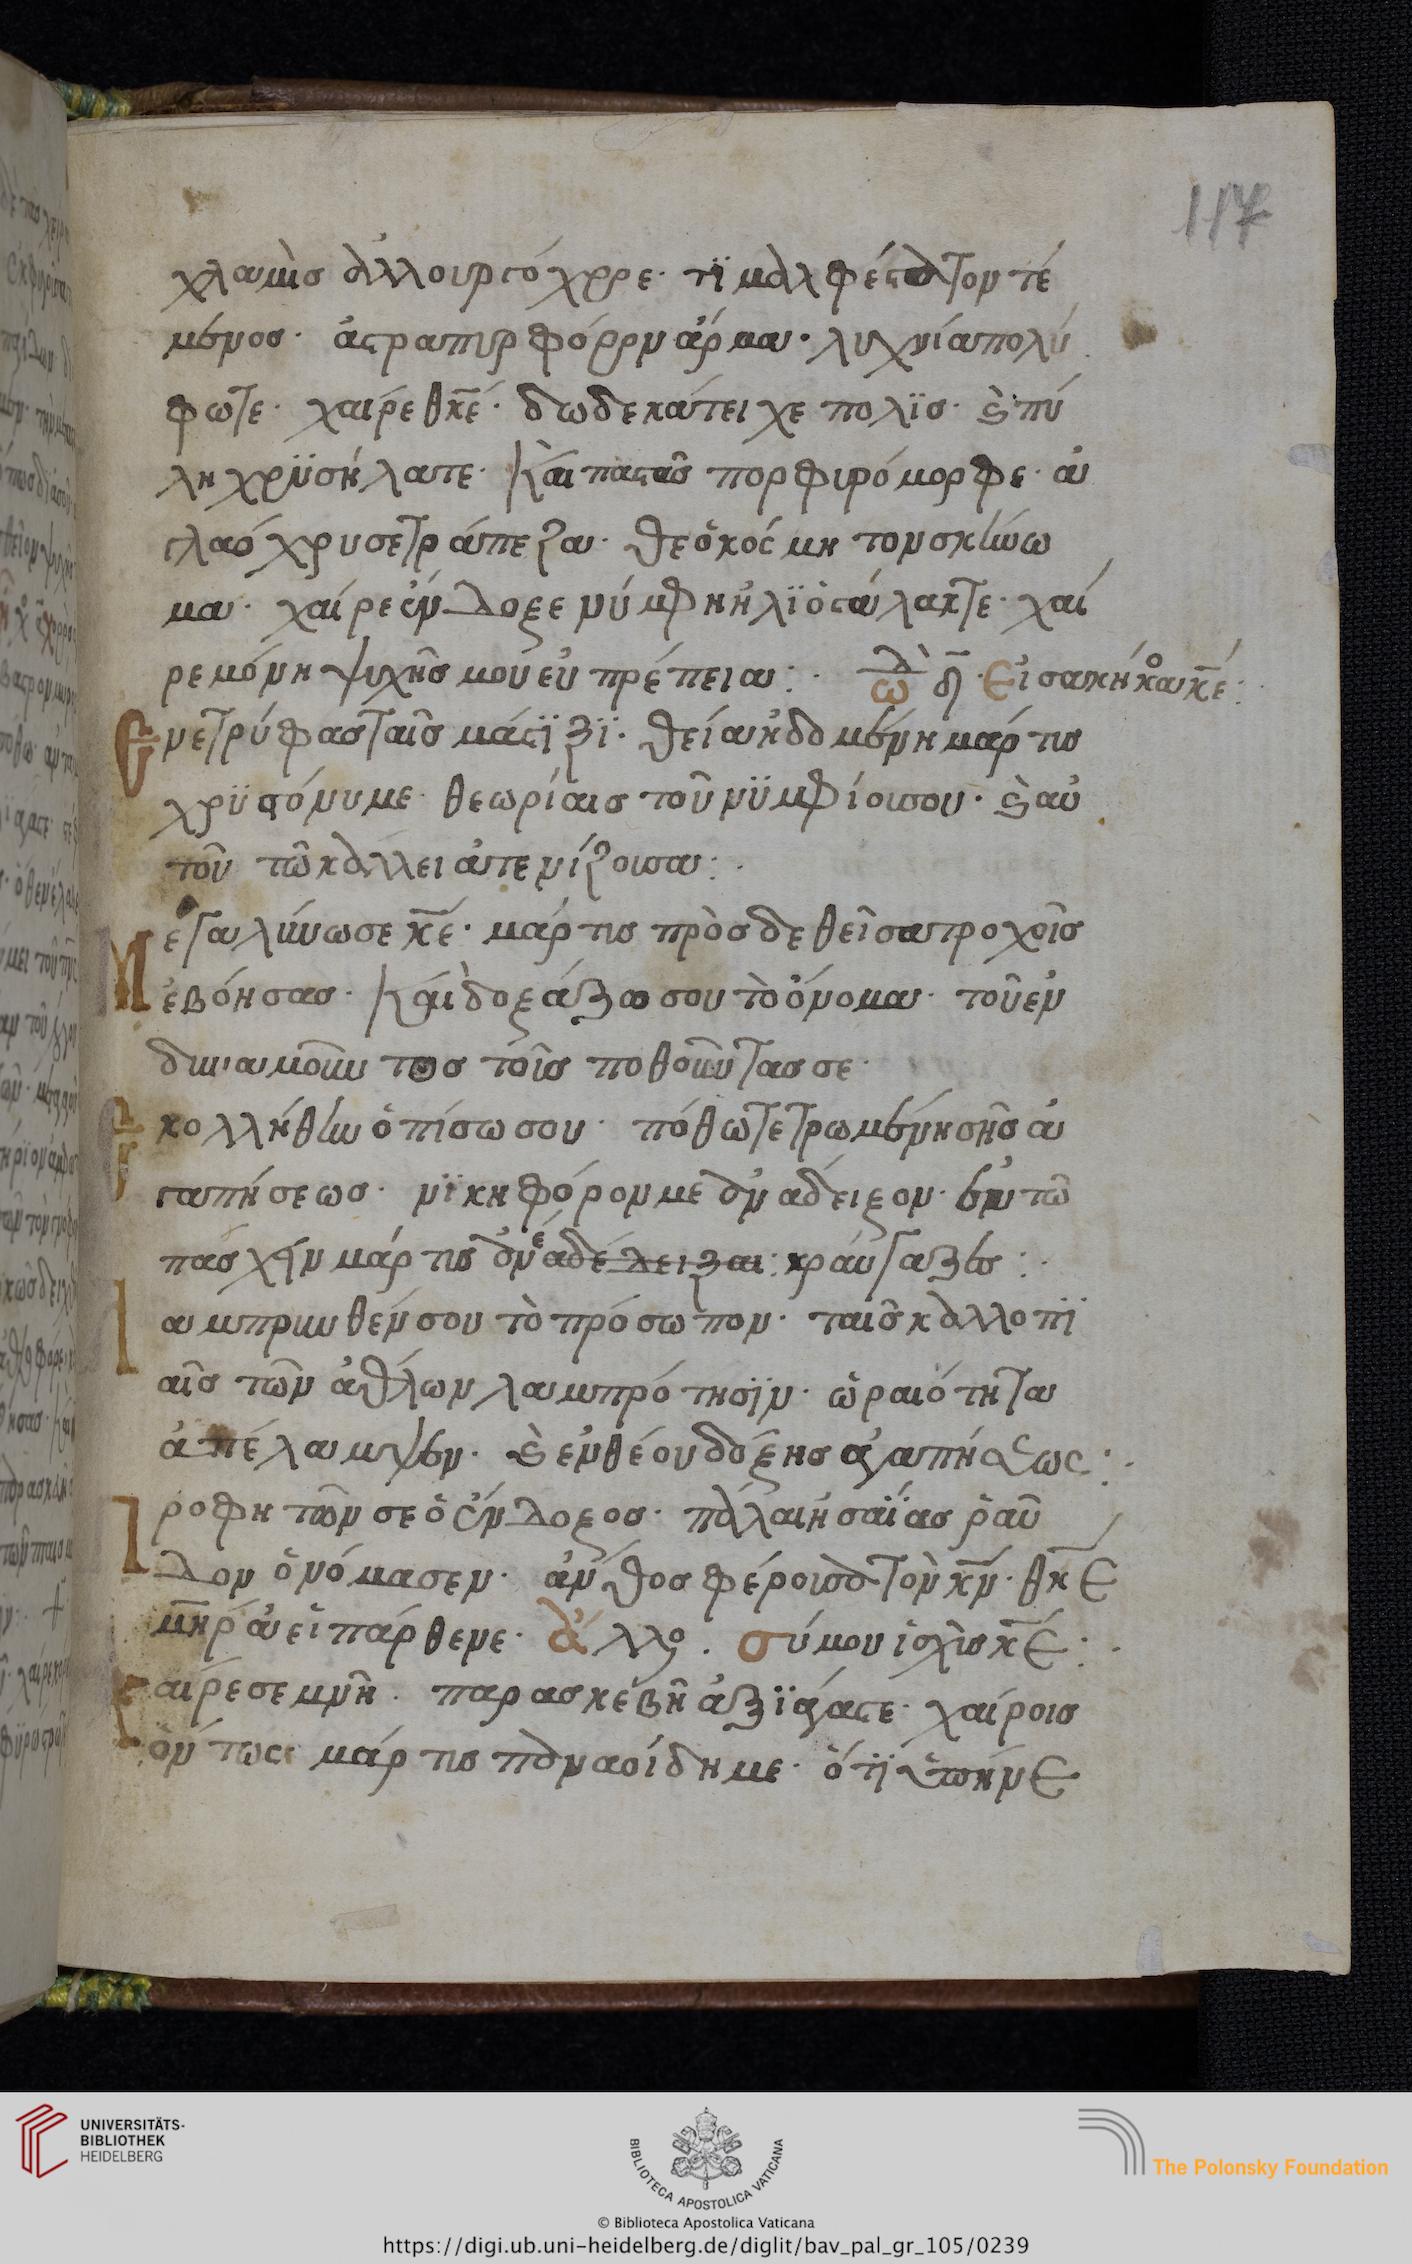 117
χλαμὶσ ἀλλουργόχρρε· τϊμαλφέστατον τέ
μενοσ· ἀστραπιρφόρρν ἄρμα· λυχνία πολύ
φωτε· χαίρε θκε· δωδεκάτειχε πολϊσ· ὴ πύ
λη χρϋσήλατε· Καὶ παστὰσ πορφιρόμορφε· ἀ
γλαό χρυσε τράπεζα· θεὸκόσμητον σκίνω
μα· χαίρε ἔνδοξε νύμφη ἡλϊὸστάλακτε· χαί
ρε μόνη ψιχῆσ μου εὐπρέπεια: ὠδὴ δ Εἰσακήκοα κε:
Ενετρύφασ ταῖσ μάστϊξϊ· θεία ἡδομένη μάρτισ
χρϋστόνυμε· θεωρίαισ τοῦ νϋμφίου σου· ὴ αὐ
τοῦ τῶ κάλλει ἀτενίζουσα:
Μεγαλύνω σε κε· μάρτισ πρὸσδεθεῖσα τροχοῖσ
ἐβόησασ· Καὶ δοξάζω σου τὸ ὄνομα· τοῦ ἐν
δυναμοῦντοσ τοῖσ ποθοῦντασ σε·
Εκολλήθιν ὀπίσω σου· πόθω τετρωμένη σῆσ ἀ
γαπήσεωσ· νϊκηφόρον με ἀναδειξον· ἐν τῶ
πάσχην μάρτισ ἀνεαδέλειζαι: κραύγαζεισ:
Λαμπρυνθέν σου τὸ πρόσωπον· ταῖσ καλλοπϊ
αῖσ τῶν ἀθλων λαμπρότησϊν· ὡραιότητα
ἀπέλαμψεν· ὴ ἐνθέου δόξησ ἀγαπήσεως:
Προφητῶν σε ὁ ἔνδοξοσ· πάλαι ἡσαΐασ ῥαῦ
δον ὀνόμασεν· ἀνθοσ φέρουσα τὸν κν· θκε
μηρ ἀειπάρθενε· ἄλλο. σύ μου ἰσχὶσ κε:
Χαίρε σεμνῆ· παρασκέβῆ ἀξϊάγαστε· χαίροισ
ὄντως μάρτισ παναοίδημε· ὁτϊ ἐπήνε
UNIVERSITÄTS-
BIBLIOTHEK
HEIDELBERG
BIBLIOTECA APOSTOLICA VATICANA
The Polonsky Foundation
© Biblioteca Apostolica Vaticana
https://digi.ub.uni-heidelberg.de/diglit/bav_pal_gr_105/0239